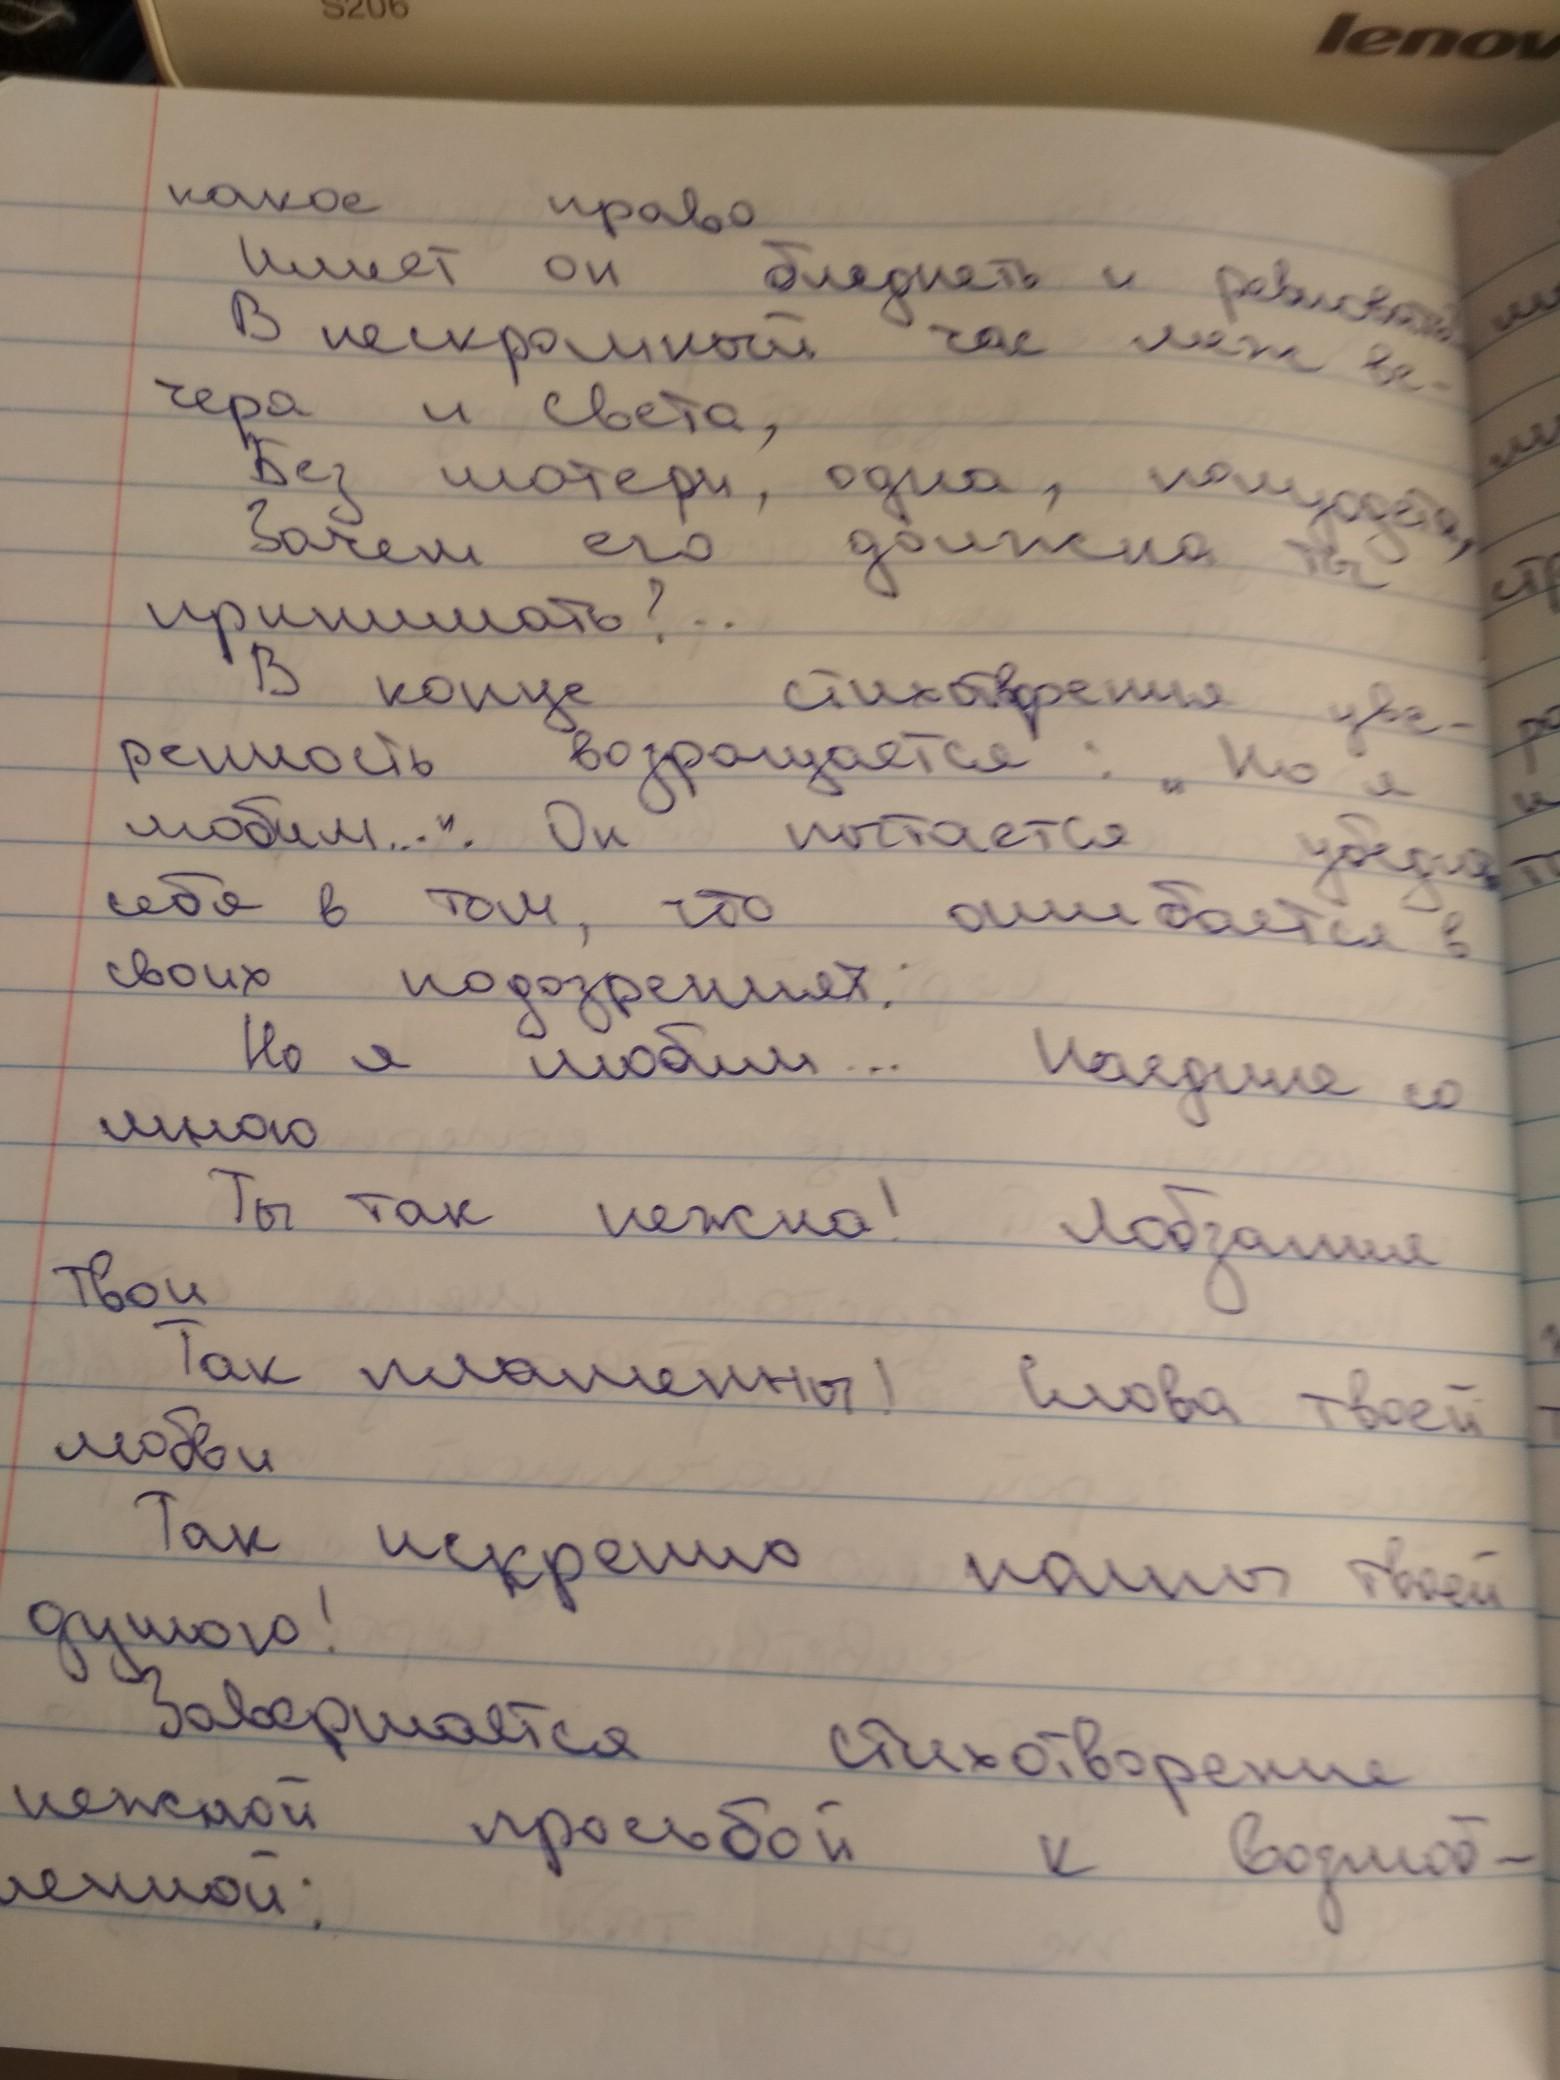 S206
lenov
какое право
Имеет он бледнеть и ревновать
В нескромный час меж ве-
чера и света,
Без матери, одна, полуодета,
Зачем его должна ты
принимать?..
В конце стихотворения уве-
ренность возращается: „Но я
любим...". Он пытается убедить
себя в том, что ошибается в
своих подозрениях:
Но я любим... Наедине со
мною
Ты так нежна! Лобзания
твои
Так пламенны! Слова твоей
любви
Так искренно полны твоей
душою!
Завершается стихотворение
нежной просьбой к возлюб-
ленной: